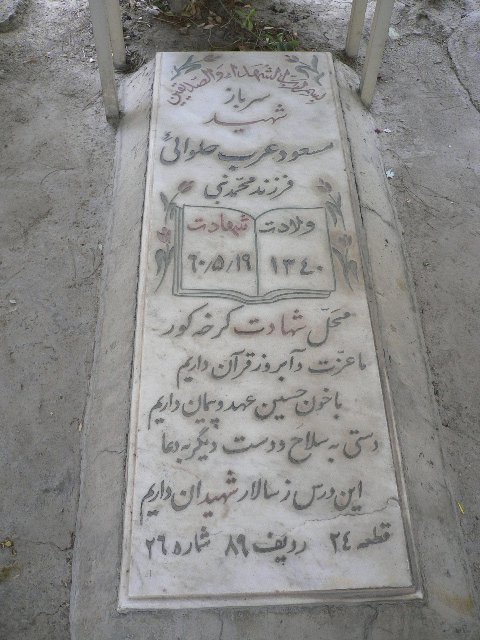 بسم رب الشهداء والصدیقین
سرباز
شهید
مسعود عرب حلوائی
فرزند محمدنبی
ولادت شهادت
۱۳۴۰ ۶۰/۵/۱۹
محلّ شهادت کرخه کور
ما عزّت و آبرو ز قرآن داریم
با خون حسین عهد و پیمان داریم
دستی به سلاح و دست دیگر به دعا
این درس ز سالار شهیدان داریم
قطعه ۲۴ ردیف ۸۹ شماره ۲۶